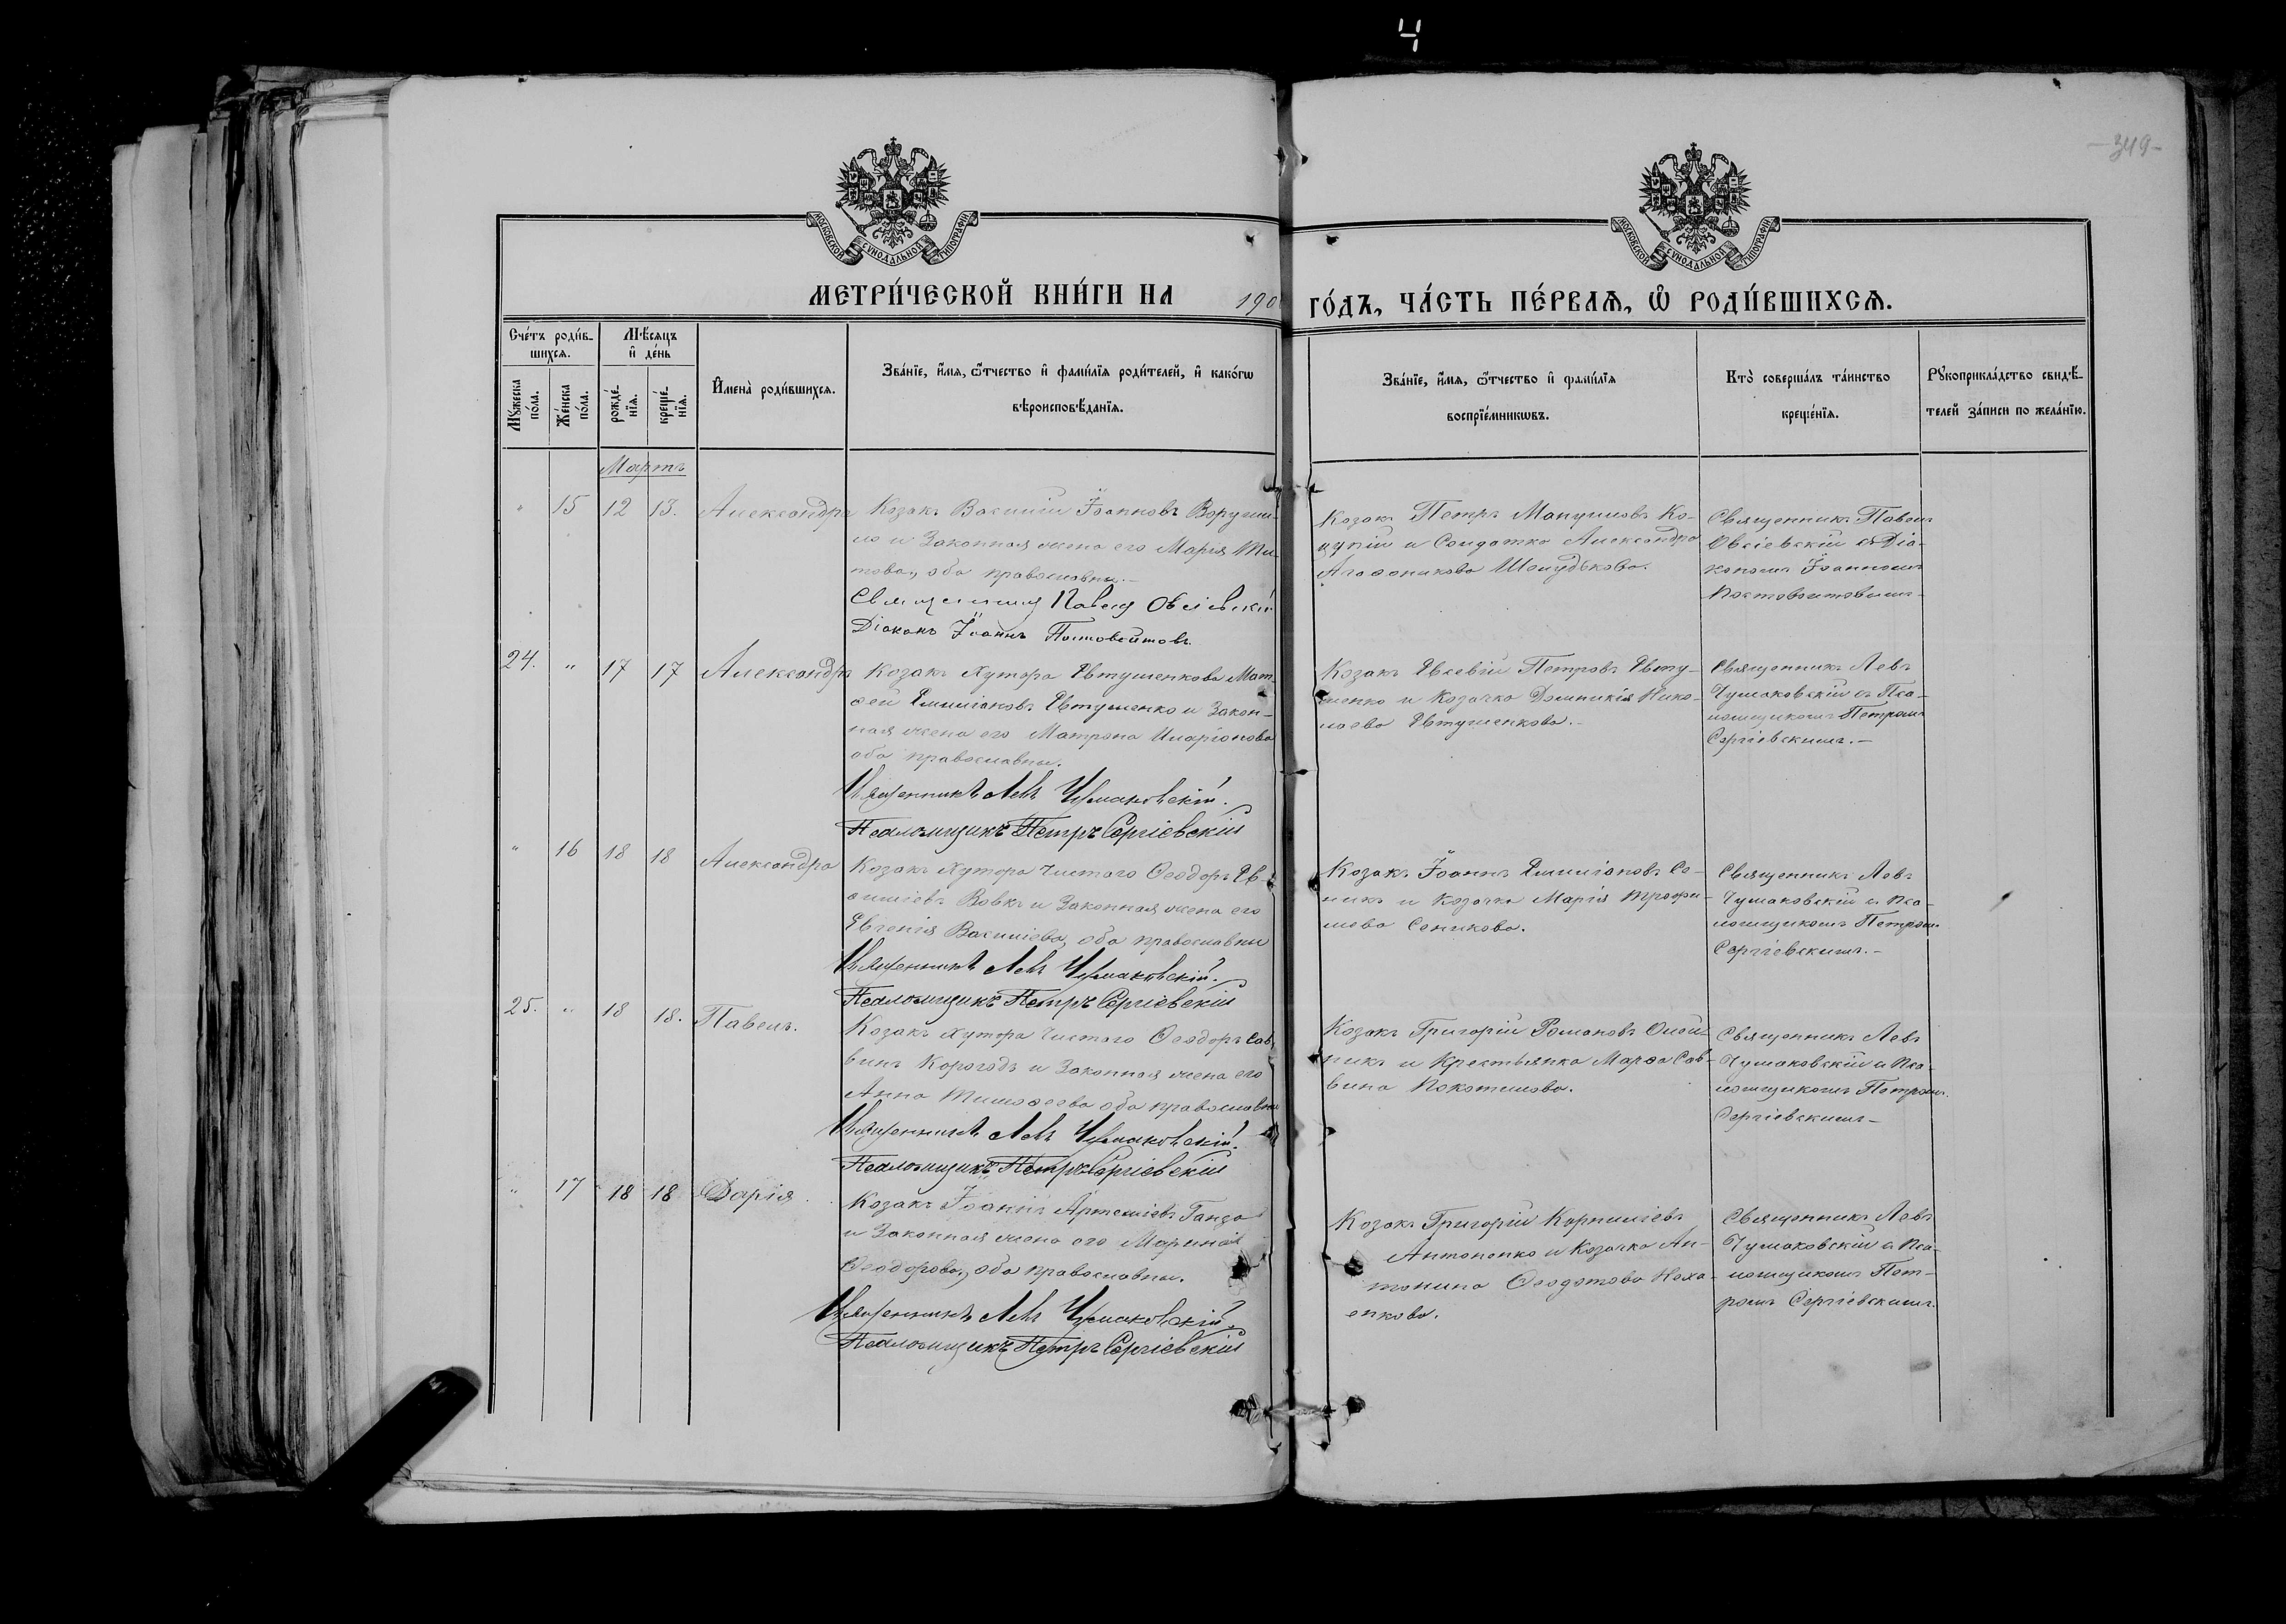 4
-349-
МОСКОВСКОЙ СѴНОДАЛЬНОЙ ТИПОГРАФІИ
МОСКОВСКОЙ СѴНОДАЛЬНОЙ ТИПОГРАФІИ
МЕТРИ́ЧЕСКОЙ КНИ́ГИ НА 190
ГО́ДЪ, ЧА́СТЬ ПЕ́РВАѦ, Ѽ РОДИ́ВШИХСѦ.
Сче́тъ роди́в-
шихсѧ.
Мѣ́сяцъ
и҆ де́нь
Мꙋ́жеска
по́ла.
Же́нска
по́ла.
рожде́-
нїѧ.
креще́-
нїѧ.
И҆мена̀ роди́вшихсѧ.
Зва́нїе, и҆́мѧ, ѻ҆́тчество и҆ фами́лїѧ роди́телей, и҆ како́гѡ
вѣроисповѣ́данїѧ.
Зва́нїе, и҆́мѧ, ѻ҆́тчество и҆ фами́лїѧ
воспрїе́мникѡвъ.
Кто̀ соверша́лъ та́инство
креще́нїѧ.
Рꙋкоприкла́дство свидѣ́-
телей за́писи по жела́нїю.
Мартъ
" 15 12 13. Александра
Козакъ Василій Іоанновъ
ло и Законная жена его Марія Ти-
това, оба православны.-
Священникъ Павелъ Овсіевскій
Діаконъ Іоаннъ Постовойтовъ
Козакъ Петръ Мануиловъ Ко-
цупій и Солдатка Александра
Агафоникова Шелудькова.
Священникъ Павелъ
Овсіевскій съ Діа-
кономъ Іоанномъ
Постовойтовымъ-
24. " 17 17 Александръ
Козакъ Хутора Евтушенкова Мат-
ѳей Емиліановъ Евтушенко и Закон-
ная жена его Матрона Иларіонова
оба православны.
Священникъ Левъ Чумаковскій.
Псаломщикъ Петръ Сергіевскій
Козакъ Евсевій Петровъ Евту-
шенко и Козачка Домникія Нико-
лаева Евтушенкова.-
Священникъ Левъ
Чумаковскій съ Пса-
ломщикомъ Петромъ
Сергіевскимъ.-
" 16 18 18 Александра
Козакъ Хутора Чистаго Ѳеодоръ Ев-
ѳиміевъ Вовкъ и Законная жена его
Евгенія Василіева, оба православны
Священникъ Левъ Чумаковскій.
Псаломщикъ Петръ Сергіевскій
Козакъ Іоаннъ Емиліановъ Се-
никъ и Козачка Марія Трофи-
мова Сеникова.
Священникъ Левъ
Чумаковскій съ Пса-
ломщикомъ Петромъ
Сергіевскимъ.-
25. " 18 18. Павелъ.
Козакъ Хутора Чистаго Ѳеодоръ Сав-
винъ Корогодъ и Законная жена его
Анна Тимоѳеева оба православны
Священникъ Левъ Чумаковскій.
Псаломщикъ Петръ Сергіевскій
Козакъ Григорій Романовъ Олій-
никъ и Крестьянка Марѳа Сав-
вина Покотилова.
Священникъ Левъ
Чумаковскій и Пса-
ломщикомъ Петромъ
Сергіевскимъ-
" 17 18 18 Дарія
Козакъ Іоаннъ Артеміевъ Ганза
и Законная жена его Марина
Ѳеодорова, оба православны.
Священникъ Левъ Чумаковскій.
Псаломщикъ Петръ Сергіевскій
Козакъ Григорій Корниліевъ
Антоненко и Козачка Ан-
тонина Ѳеодотова Неха-
енкова.
Священникъ Левъ
Чумаковскій съ Пса-
ломщикомъ Пет-
ромъ Сергіевскимъ.